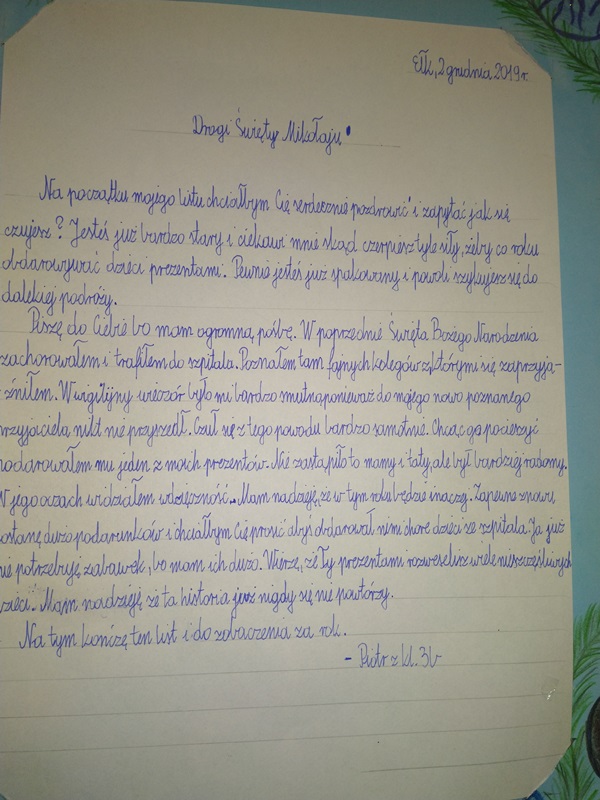 Ełk, 2 grudnia 2019 r.
Drogi Święty Mikołaju
Na początku mojego listu chciałbym Cię serdecznie pozdrowić i zapytać jak się
czujesz? Jesteś już bardzo stary i ciekawi mnie skąd czerpiesz tyle siły, żeby co roku
obdarowywać dzieci prezentami. Pewnie jesteś już spakowany i powoli szykujesz się do
dalekiej podróży.
Piszę do Ciebie bo mam ogromną prośbę. W poprzednie Święta Bożego Narodzenia
zachorowałem i trafiłem do szpitala. Poznałem tam fajnych kolegów z którymi się zaprzyja-
źniłem. W wigilijny wieczór było mi bardzo smutno, ponieważ do mojego nowo poznanego
rzyjaciela nikt nie przyszedł. Czuł się z tego powodu bardzo samotnie. Chcąc go pocieszyć
podarowałem mu jeden z moich prezentów. Nie zastąpiło to mamy i taty, ale był bardziej radosny.
W jego oczach widziałem wdzięczność. Mam nadzieję, że w tym roku będzie inaczej. Zapewne znowu
ostanę dużo podarunków i chciałbym Cię prosić abyś obdarował nimi chore dzieci ze szpitala. Ja już
nie potrzebuję zabawek, bo mam ich dużo. Wierzę, że Ty prezentami rozweselisz wiele nieszczęśliwych
zieci. Mam nadzieję że ta historia już nigdy się nie powtórzy.
Na tym kończę ten list i do zobaczenia za rok.
- Piotr z kl. 3b